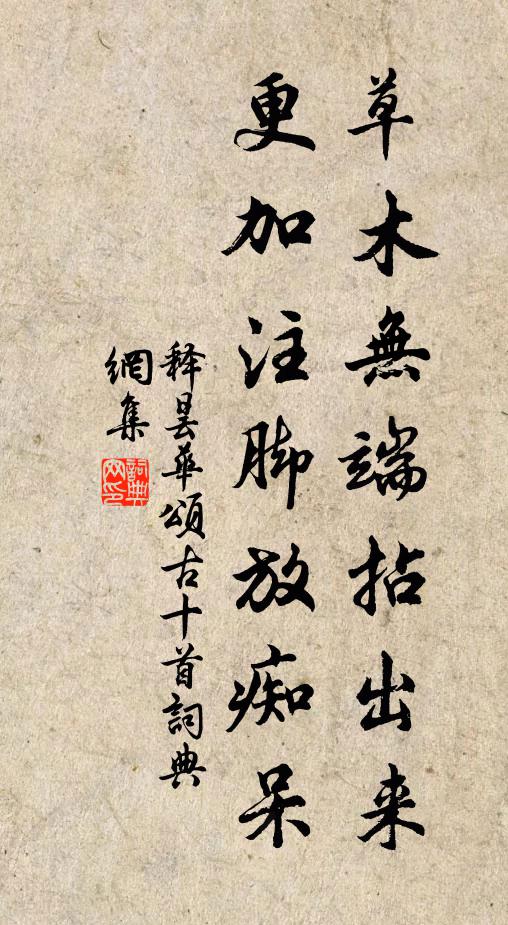 草木無端拈出来
更加注脚放痴呆
释昙華頌古十首詞典
網集
詞典網印